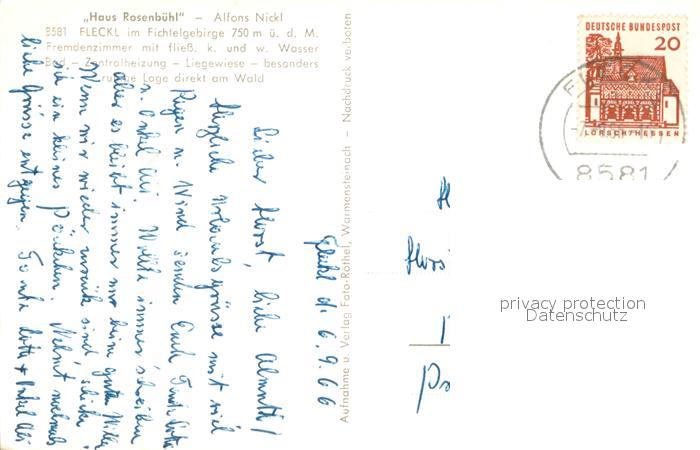 „Haus Rosenbühl" – Alfons Nickl
8581 FLECKL im Fichtelgebirge 750 m ü. d. M.
Fremdenzimmer mit fließ. k. und w. Wasser
Bad – Zentralheizung – Liegewiese – besonders
ruhige Lage direkt am Wald
Fleckl d. 6.9.66
Lieber Horst, liebe Almuth!
Herzliche Urlaubsgrüsse mit viel
Regen u. Wind senden Euch Tante Lotte
u. Onkel Adi. Wollte immer schreiben
aber es bleibt immer nur beim guten Willen
Wenn wir wieder zurück sind schicke
ich ein kleines Päckchen. Nehmt nochmals
liebe Grüsse entgegen. Tante Lotte + Onkel Adi
Aufnahme u. Verlag Foto-Röthel, Warmensteinach – Nachdruck verboten
DEUTSCHE BUNDESPOST
20
LORSCH/HESSEN
8581
Horst
privacy protection
Datenschutz